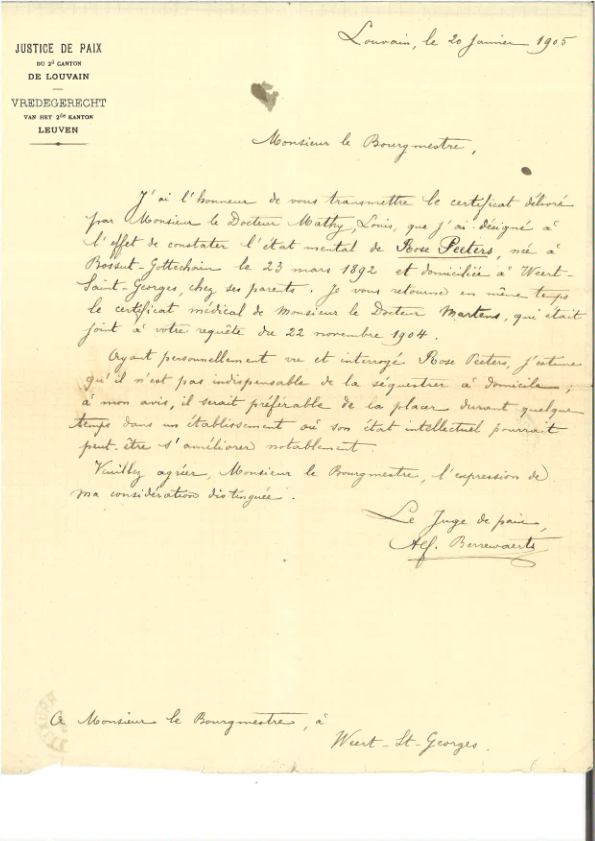 JUSTICE DE PAIX
DU 2d CANTON
DE LOUVAIN
VREDEGERECHT
VAN HET 2de KANTON
LEUVEN
Louvain, le 20 Janvier 1905
Monsieur le Bourgmestre,
J'ai l'honneur de vous transmettre le certificat délivré
par Monsieur le Docteur Mathy, Louis, que j'ai désigné à
l'effet de constater l'état mental de Rose Peeters, née à
Bossut-Gottechain le 23 mars 1892 et domiciliée à Weert-
Saint-Georges, chez ses parents. Je vous retourne en même temps
le certificat médical de Monsieur le Docteur Martens, qui était
joint à votre requête du 22 novembre 1904.
Ayant personnellement vu et interrogé Rose Peeters, j'estime
qu'il n'est pas indispensable de la séquestrer à domicile ;
à mon avis, il serait préférable de la placer durant quelque
temps dans un établissement où son état intellectuel pourrait
peut-être s'améliorer notablement.
Veuillez agréer, Monsieur le Bourgmestre, l'expression de
ma considération distinguée.
Le Juge de paix,
Alf. Berrewaerts
A Monsieur le Bourgmestre, à
Weert-St-Georges.